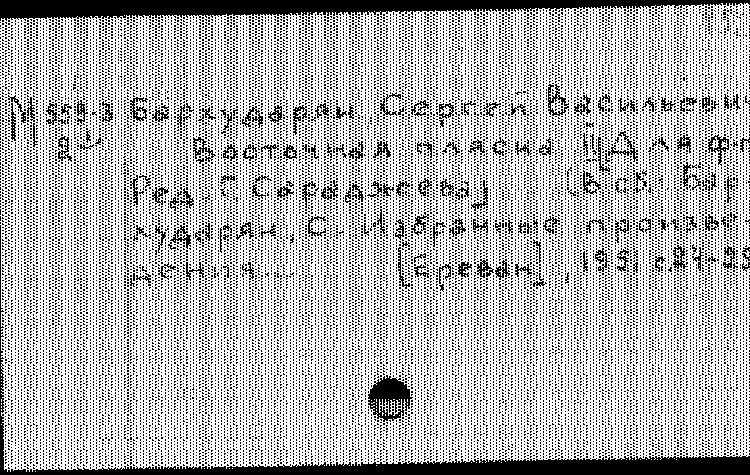 М 559-3 Бархударян, Сергей Васильевич
2 Восточная пляска. [Для ф-п.
Ред. Г. Сараджева]. (В сб.: Бар-
хударян, С. Избранные произве-
дения... [Ереван], 1951 с. 24-25